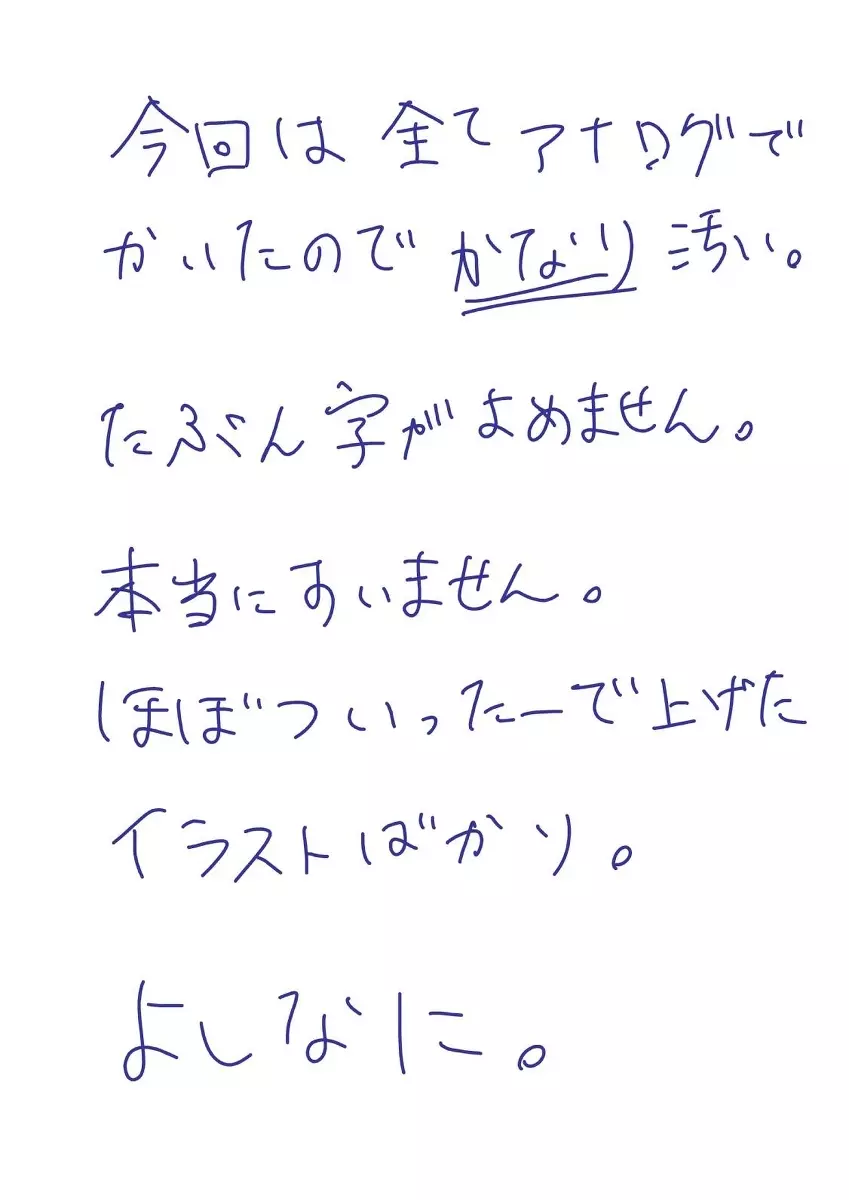 今回は全てアナログで
かいたのでかなり汚い。
たぶん字がよめません。
本当にすいません。
ほぼついったーで上げた
イラストばかり。
よしなに。